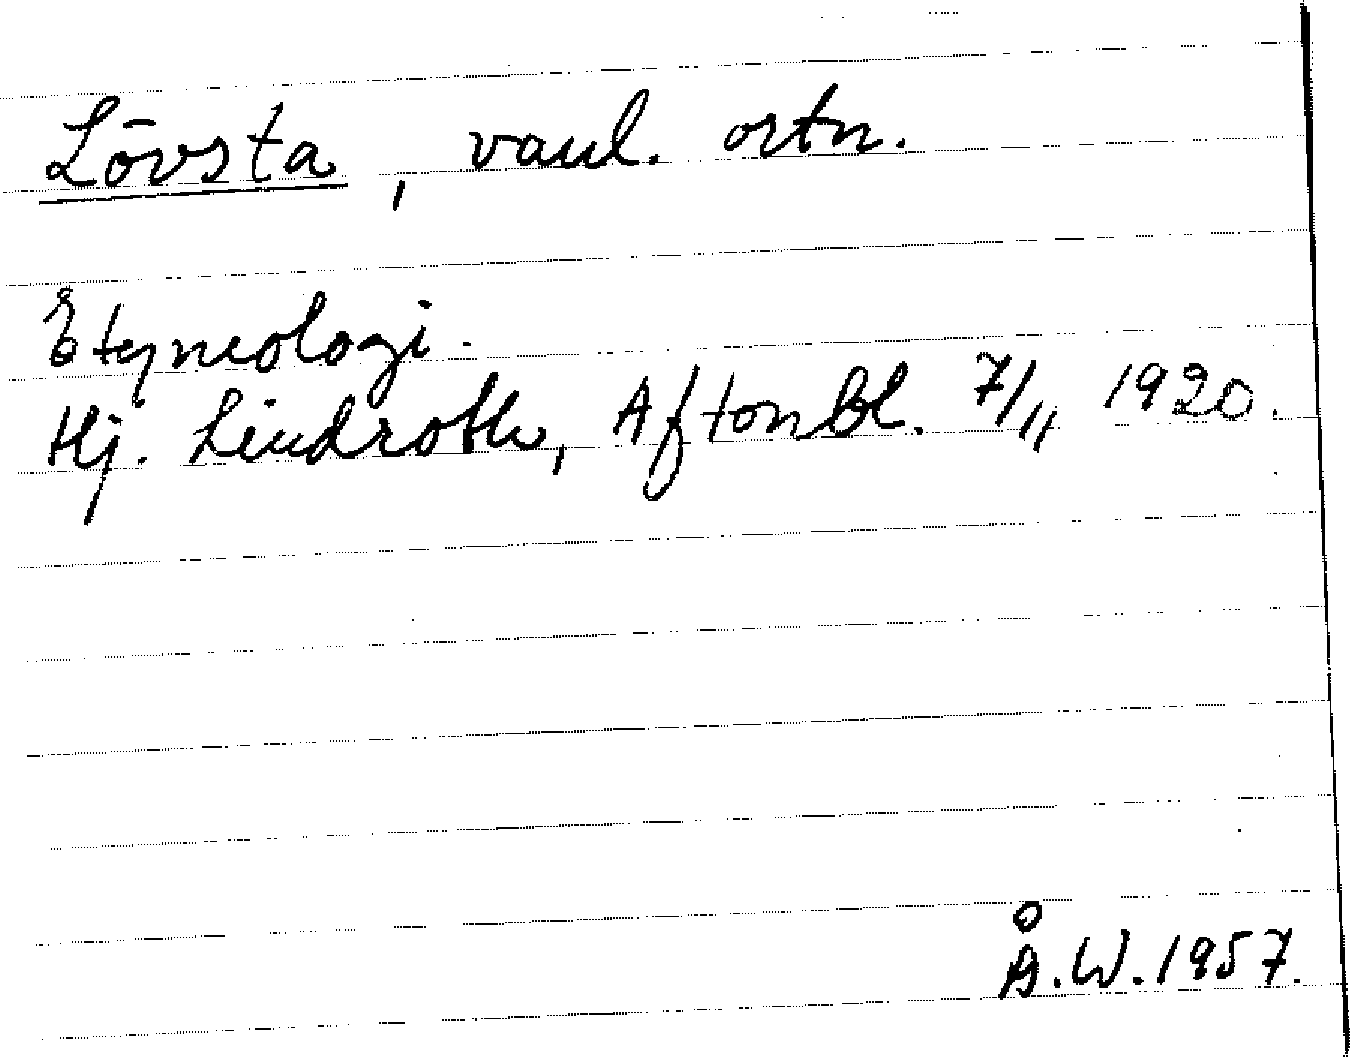 Lövsta, vanl. ortn.
Etymologi.
Hj. Lindroth, Aftonbl. 7/11 1920.
Å.W. 1957.